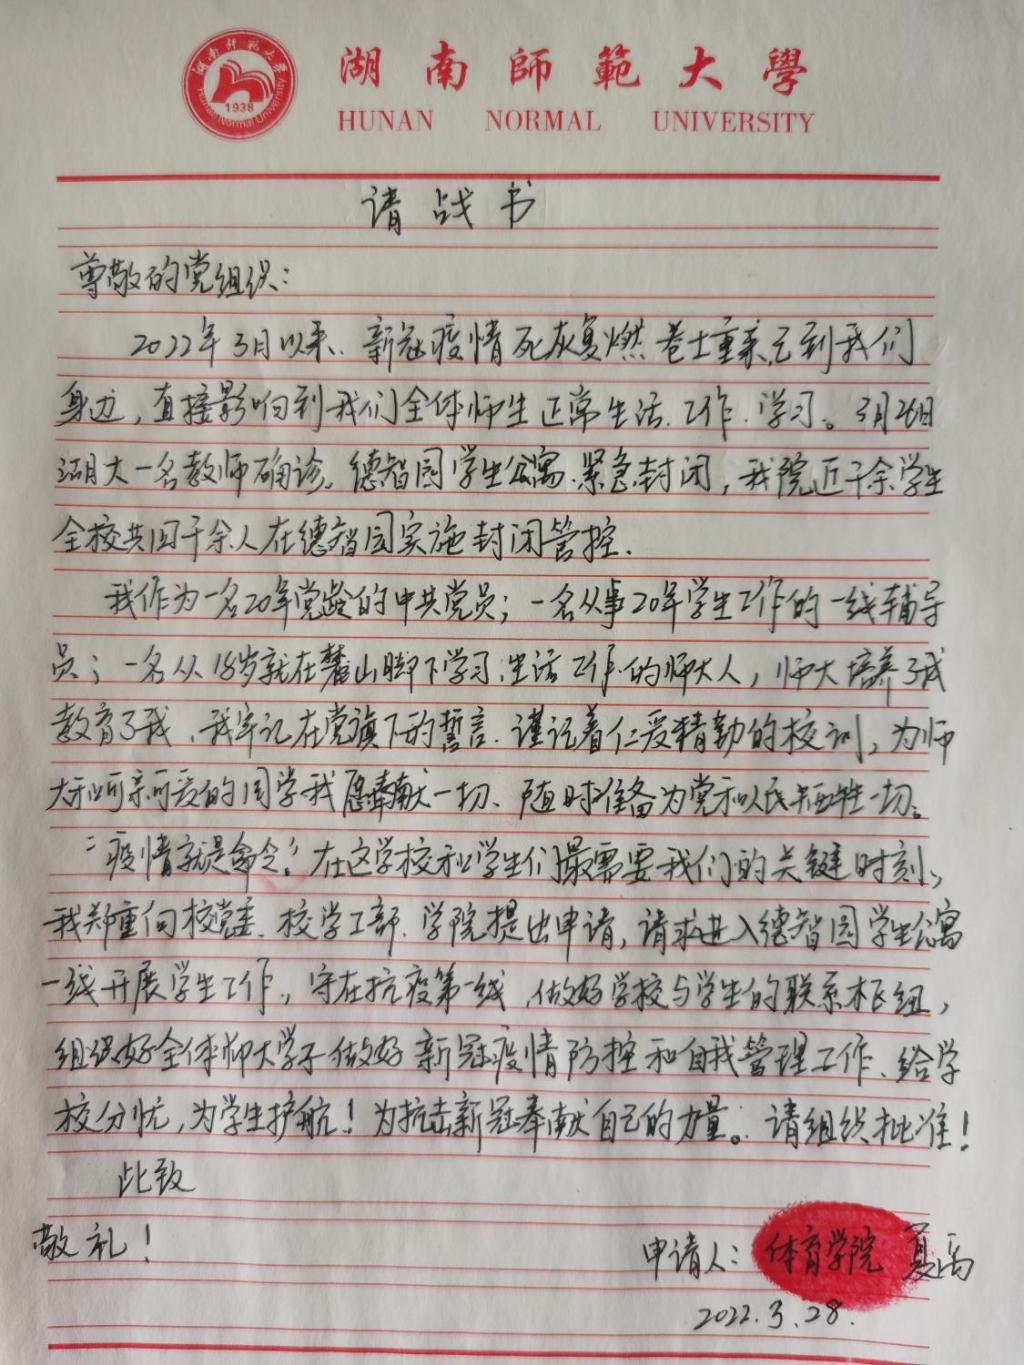 湖南师范大学
Hunan Normal University
1938
湖南師範大學
HUNAN NORMAL UNIVERSITY
请战书
尊敬的党组织：
2022年3月以来、新冠疫情死灰复燃 卷土重来已到我们
身边，直接影响到我们全体师生正常生活、工作、学习。3月
湖大一名教师确诊。德智园学生公寓、紧急封闭，我院近千余学生
全校共四千余人在德智园实施封闭管控.
我作为一名20年党龄的中共党员；一名从事20年学生工作的一线辅导
员；一名从18岁就在麓山脚下学习、生活工作的师大人，师大培养了我
教育了我、我牢记在党旗下的誓言、谨记着仁爱精勤的校训，为师
大和可亲可爱的同学我愿奉献一切、随时准备为党和人民牺牲一切。
“疫情就是命令”在这学校和学生们最需要我们的关键时刻，
我郑重向校党委、校学工部、学院提出申请，请求进入德智园学生公寓
一线开展学生工作，守在抗疫第一线，做好学校与学生的联系枢纽，
组织好全体师大学子做好新冠疫情防控和自我管理工作、给学
校分忧，为学生护航！为抗击新冠奉献自己的力量。请组织批准！
此致
敬礼！
申请人：体育学院 夏禹
2022.3.28.